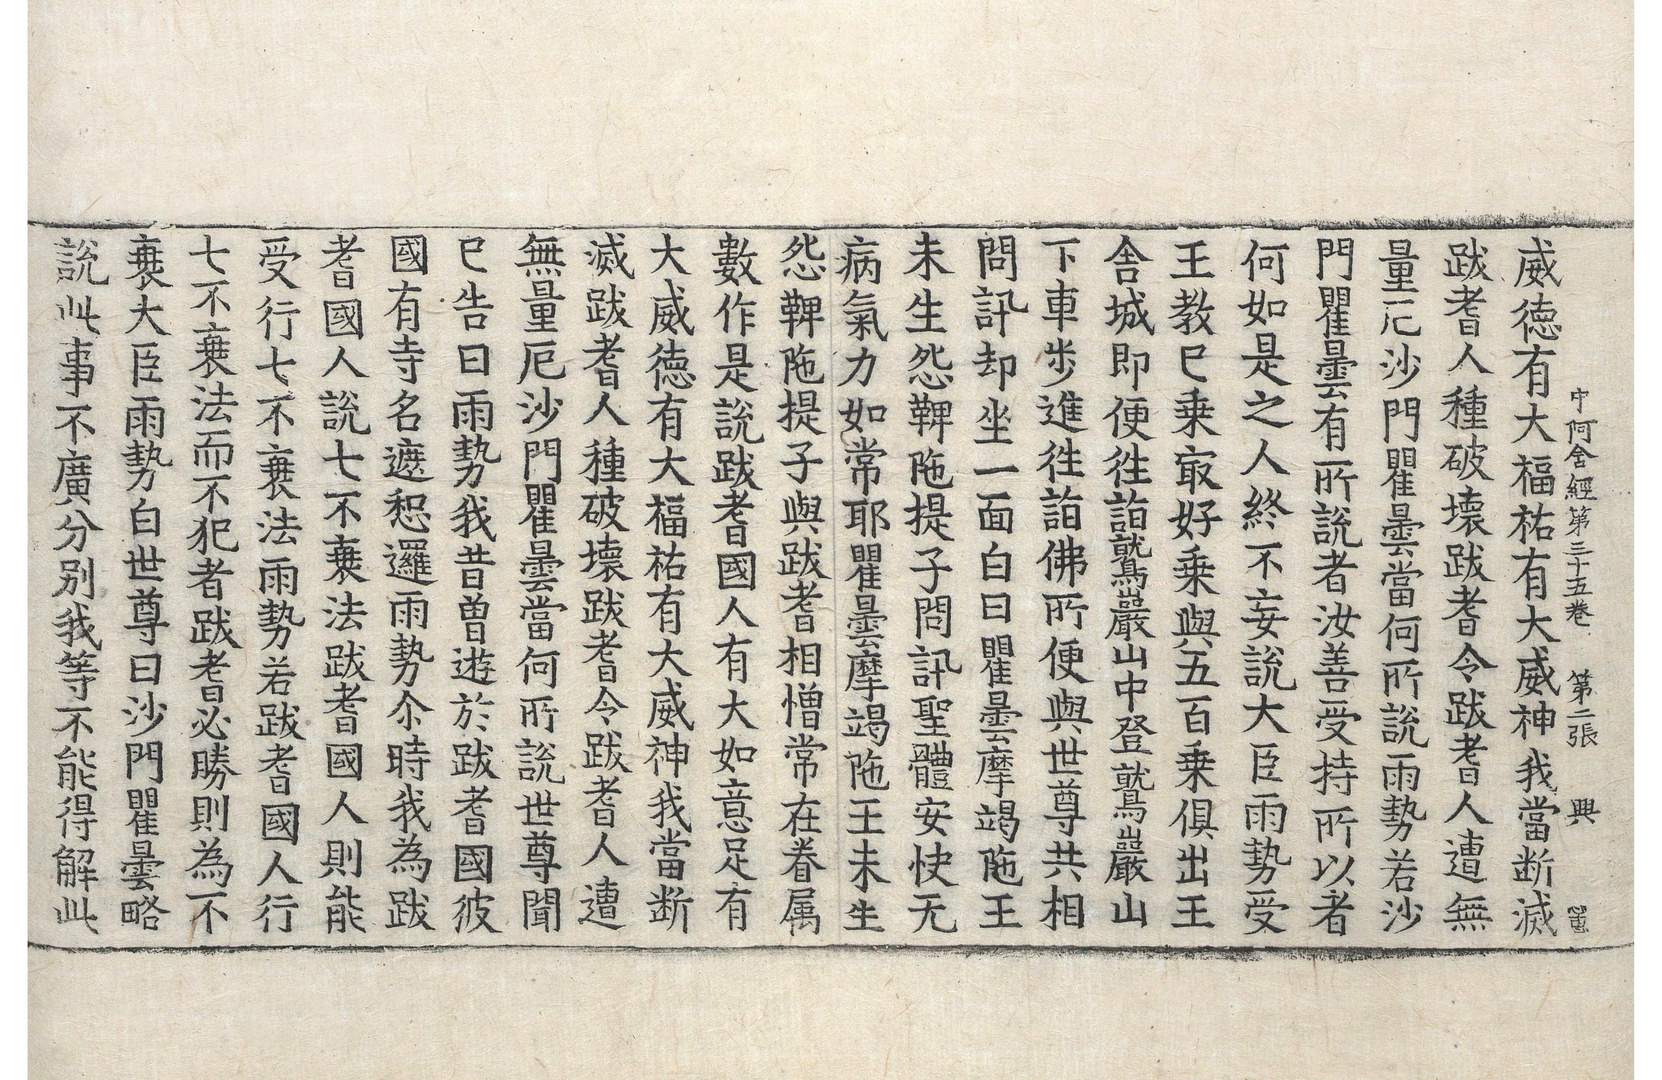 中阿含經第三十五卷 第二張 興
威德有大福祐有大威神我當斷滅
跋耆人種破壞跋耆令跋耆人遭無
量厄沙門瞿曇當何所說雨勢若沙
門瞿曇有所說者汝善受持所以者
何如是之人終不妄說大臣雨勢受
王教已乘㝡好乘與五百乘俱出王
舍城即便往詣鷲巖山中登鷲巖山
下車步進往詣佛所便與世尊共相
問訊却坐一面白曰瞿曇摩竭陁王
未生怨鞞陁提子問訊聖體安快无
病氣力如常耶瞿曇摩竭陁王未生
怨鞞陁提子與跋耆相憎常在眷属
數作是說跋耆國人有大如意足有
大威德有大福祐有大威神我當断
滅跋耆人種破壞跋耆令跋耆人遭
無量厄沙門瞿曇當何所說世尊聞
已告曰雨勢我昔曾遊於跋耆國彼
國有寺名遮惒邏雨勢尒時我為跋
耆國人說七不衰法跋耆國人則能
受行七不衰法雨勢若跋耆國人行
七不衰法而不犯者跋耆必勝則為不
衰大臣雨勢白世尊曰沙門瞿曇略
說此事不廣分别我等不能得解此